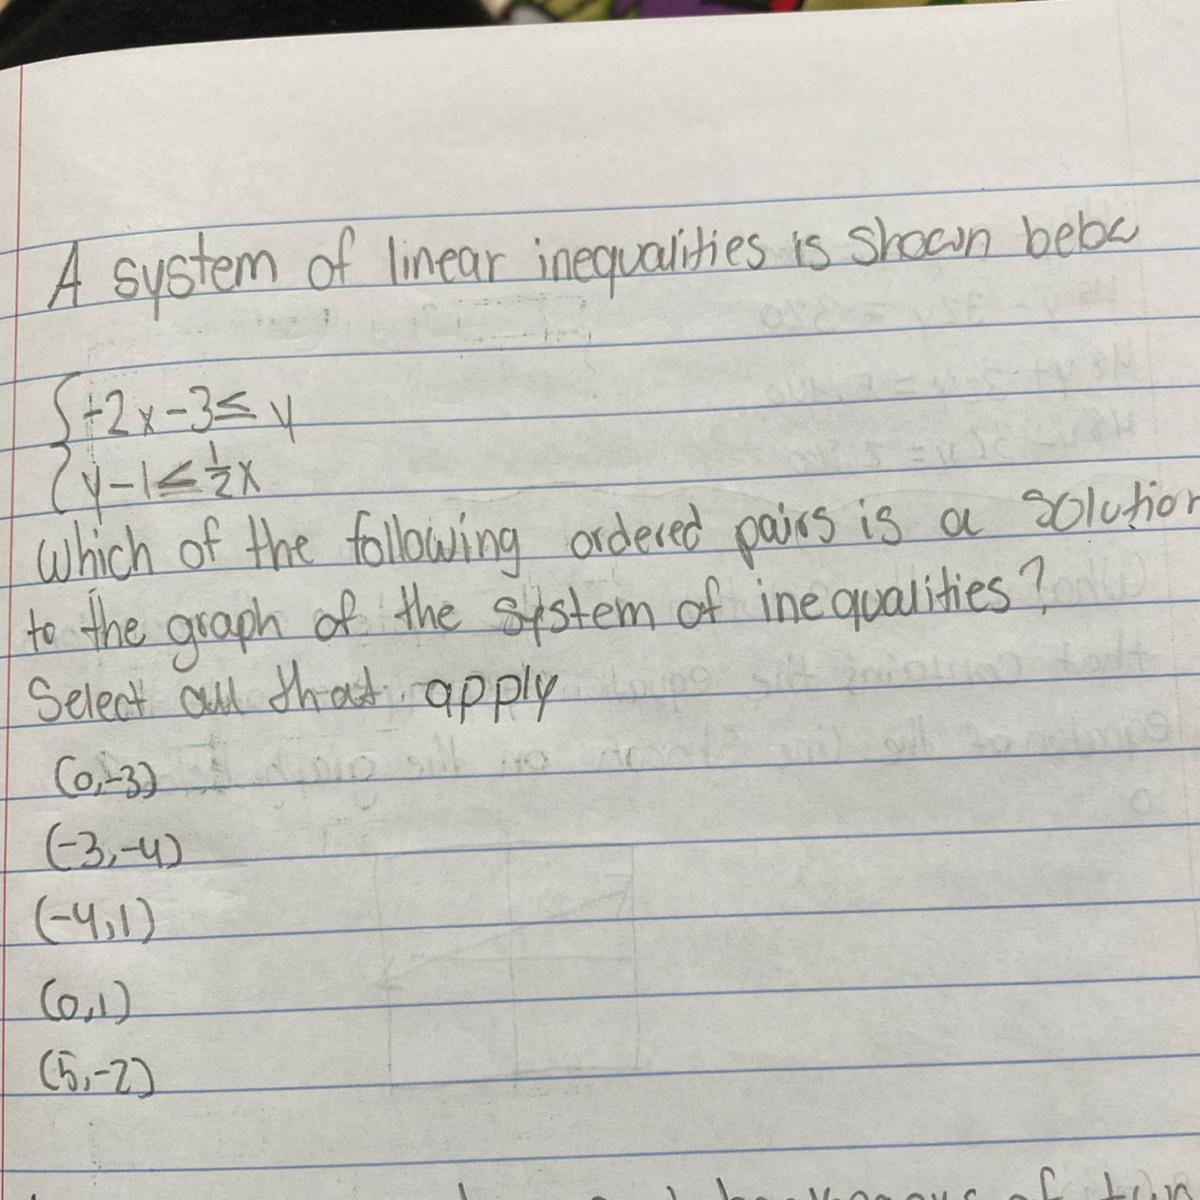 A system of linear inequalities is shown belo
{-2x-3≤ y
{y-1≤ 1/2x
which of the following ordered pairs is a solution
to the graph of the system of inequalities?
Select all that apply
(0,-3)
(-3,-4)
(-4,1)
(0,1)
(5,-2)